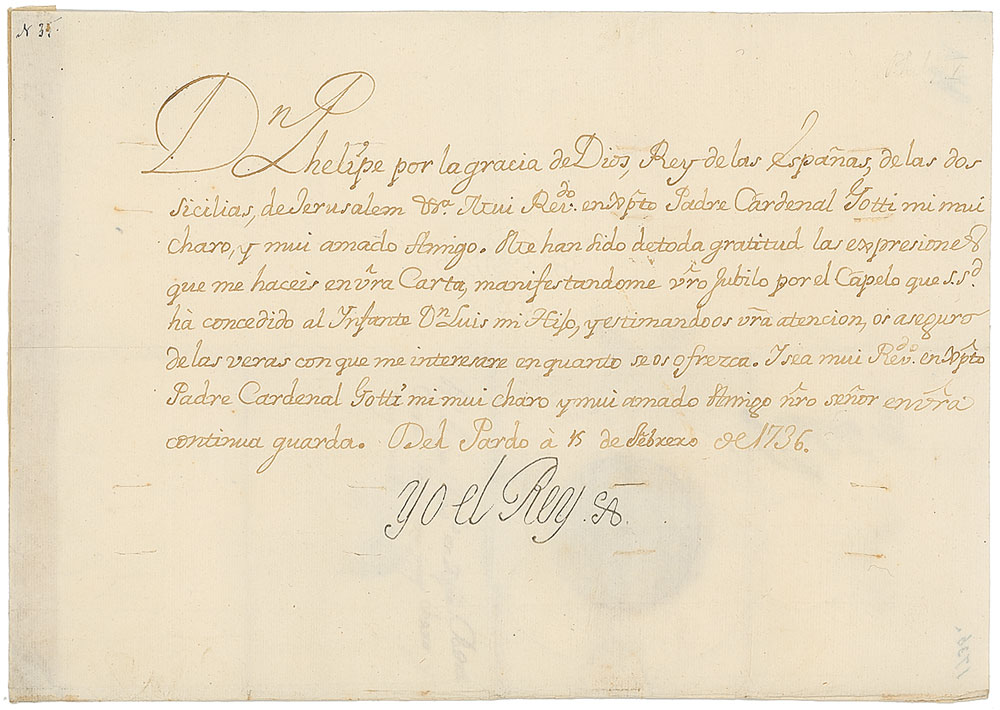 N 35
Dn Phelipe por la gracia de Dios, Rey de las Españas, de las dos
Sicilias, de Jerusalem &ca. Mui Revdo. en Xpto Padre Cardenal Gotti mi mui
charo, y mui amado Amigo. Me han sido de toda gratitud las expresiones
que me haceis en vra Carta, manifestandome vro Jubilo por el Capelo que S.Sd.
hà concedido al Ynfante Dn Luis mi Hijo, y estimandoos vra atencion, os aseguro
de las veras con que me interesare en quanto se os ofrezca. I sea mui Revdo. en Xpto
Padre Cardenal Gotti mi mui charo y mui amado Amigo nro señor en vra
continua guarda. Del Pardo à 15 de Febrero de 1736.
yo el Rey